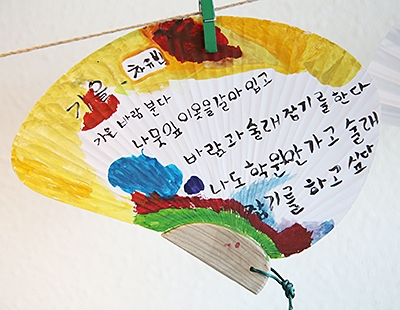 가을
차유빈
가을 바람 분다
나뭇잎 이 옷을 갈아 입고
바람과 술래 잡기를 한다
나도 학원 안 가고 술래
잡기를 하고 싶다